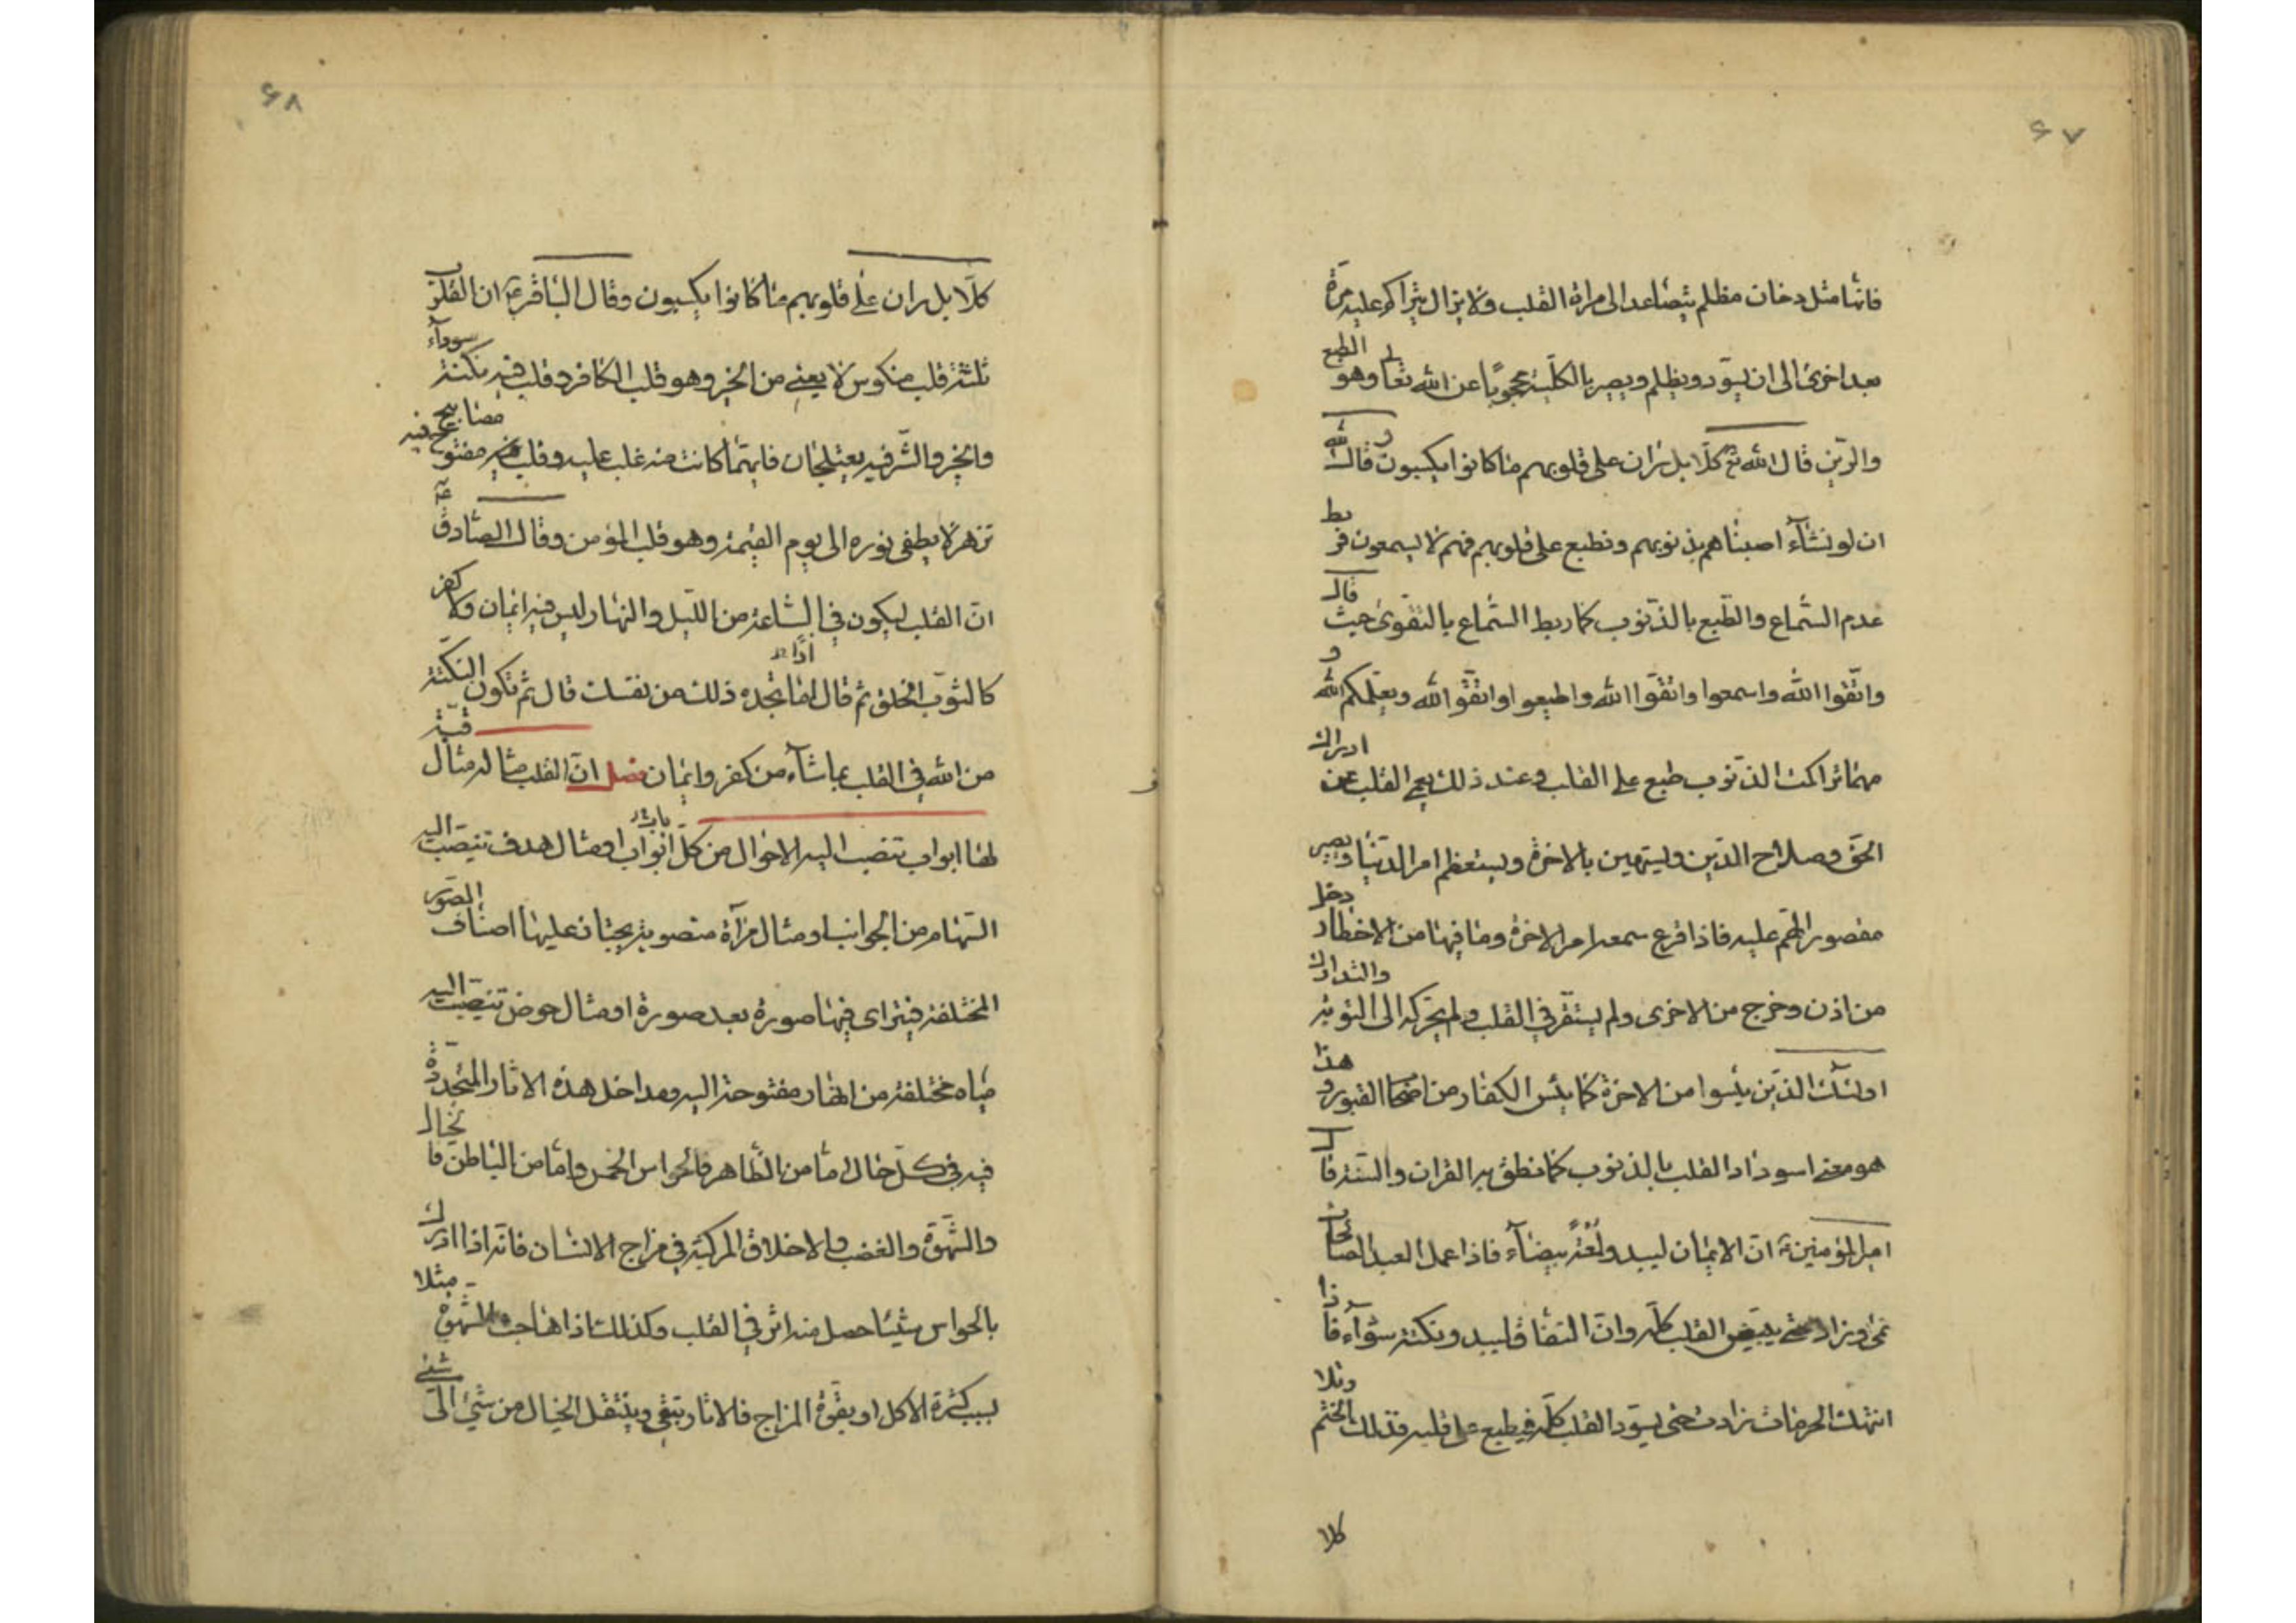 ۶۷
فانها مثل دخان مظلم يتصاعد الى مراة القلب ولا يزال يتراكم عليه مرة
بعد اخرى الى ان يسود ويظلم ويصير بالكلية محجوبا عن الله تعا وهو الطبع
والرين قال الله تع كلا بل ران على قلوبهم ما كانوا يكسبون وقال الله
ان لو نشآء اصبناهم بذنوبهم ونطبع على قلوبهم فهم لا يسمعون فربط
عدم السماع والطبع بالذنوب كما ربط السماع بالتقوى حيث قال
واتقوا الله واسمعوا واتقوا الله واطيعوا واتقوا الله ويعلمكم الله و
مهما تراكمت الذنوب طبع على القلب وعند ذلك يعمى القلب عن ادراك
الحق وصلاح الدين ويستهين بالاخرة ويستعظم امر الدنيا ويصير
مقصور الهم عليه فاذا قرع سمعه امر الاخرة وما فيها من الاخطار دخل
من اذن وخرج من الاخرى ولم يستقر في القلب ولم يحركه الى التوبة والتدارك
اولئك الذين يئسوا من الاخرة كما يئس الكفار من اصحاب القبور وهذا
هو معنى اسوداد القلب بالذنوب كما نطق به القران والسنة قال
امير المؤمنين ع ان الايمان ليبدو لمعة بيضآء فاذا عمل العبد الصالحات
نمى وزاد حتى يبيض القلب كله وان النفاق ليبدو نكتة سودآء فاذا
انتهك الحرمات زادت حتى يسود القلب كله فيطبع على قلبه فذلك الختم وتلا
كلا
۶۸
كلا بل ران على قلوبهم ما كانوا يكسبون وقال الباقر ع ان القلوب
ثلثة قلب منكوس لا يعي من الخير وهو قلب الكافر وقلب فيه نكتة سودآء
والخير والشر فيه يعتلجان فايتما كانت منه غلب عليه وقلب مفتوح فيه مصابيح
تزهر لا يطفى نوره الى يوم القيمة وهو قلب المؤمن وقال الصادق ع
ان القلب ليكون في الساعة من الليل والنهار ليس فيه ايمان ولا كفر
كالثوب الخلق ثم قال اما تجده ذلك من نفسك قال ثم تكون النكتة
من الله في القلب بما شآء من كفر وايمان فصل ان القلب مثاله مثال قبة
لها ابواب تنصب اليه الاحوال من كل ابواب او مثال هدف تنصب اليه
السهام من الجوانب او مثال مرآة منصوبة يجتاز عليها اصناف الصور
المختلفة فيتراى فيها صورة بعد صورة او مثال حوض تنصب اليه
مياه مختلفة من انهار مفتوحة اليه ومداخل هذه الاثار المتجددة
فيه في كل حال اما من الظاهر فالحواس الخمس واما من الباطن فالخيال
والشهوة والغضب والاخلاق المركبة في مزاج الانسان فانه اذا ادرك
بالحواس شيئا حصل منه اثر في القلب وكذلك اذا هاجت الشهوة مثلا
بسبب كثرة الاكل او بقوة المزاج فالاثار تبقى وينتقل الخيال من شيئ الى شيئ